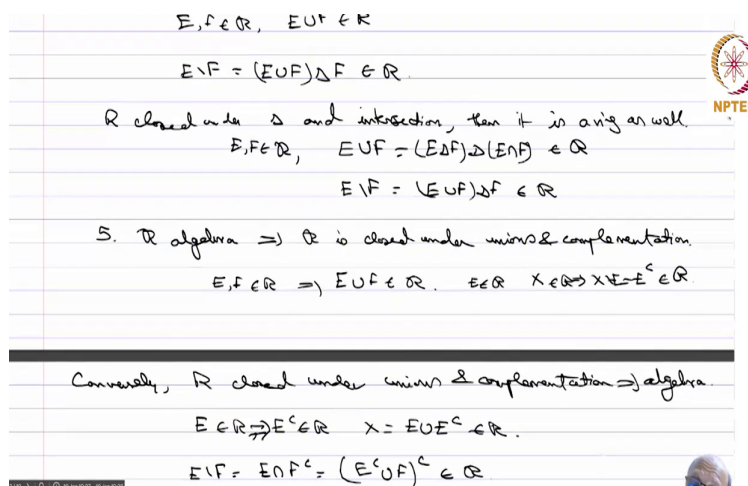 E, F ∈ R, E∪F ∈ R
E\F = (E∪F)ΔF ∈ R.
NPTE
R closed under Δ and intersection, then it is a ring as well.
E,F∈R, E∪F = (EΔF)Δ(E∩F) ∈ R
E\F = (E∪F)ΔF ∈ R
5. R algebra ⇒ R is closed under unions & complementation.
E,F ∈ R ⇒ E∪F ∈ R. E∈R X∈R⇒ X\E=E^c ∈ R
Conversely, R closed under unions & complementation ⇒ algebra.
E ∈ R ⇒ E^c ∈ R X = E∪E^c ∈ R.
E\F = E∩F^c = (E^c∪F)^c ∈ R